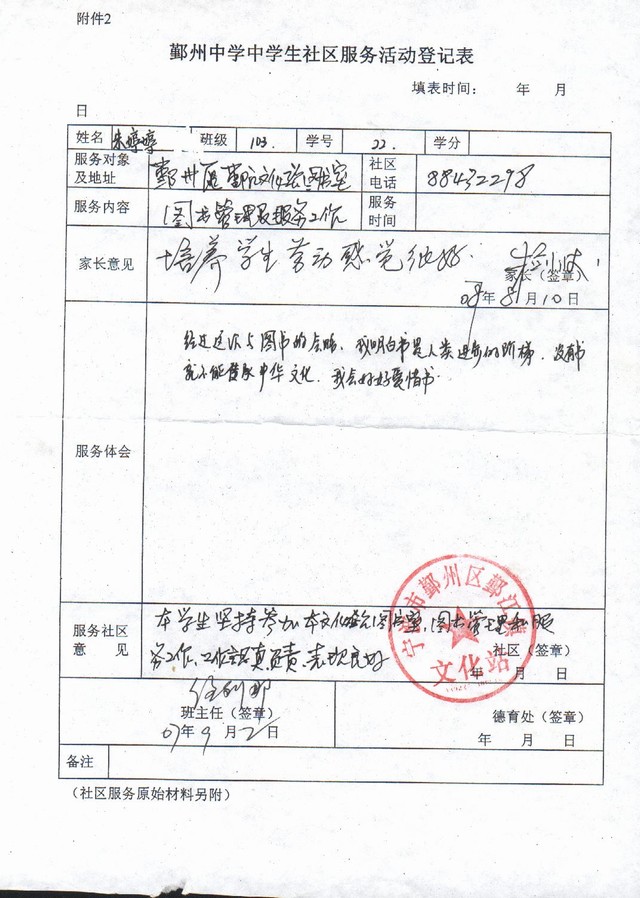 附件2
鄞州中学中学生社区服务活动登记表
填表时间： 年 月
日
姓名 朱婷婷 班级 103. 学号 22. 学分
服务对象及地址 鄞州区鄞江文化站图书室 社区电话 88432298
服务内容 图书管理及服务工作 服务时间
家长意见 培养学生劳动感觉很好.
家长（签章）
08年8月10日
经过这次与图书的
我明白书是人类进步的阶梯，没有书
就不能 中华文化，我会好好爱惜书
服务体会
宁波市鄞州区鄞江镇
文化站
服务社区意见 本学生坚持参加本文化站图书室，图书管理和服
务工作，工作认真负责，表现良好
社区（签章）
年 月 日
班主任（签章） 德育处（签章）
07年9月2日 年 月 日
备注
（社区服务原始材料另附）